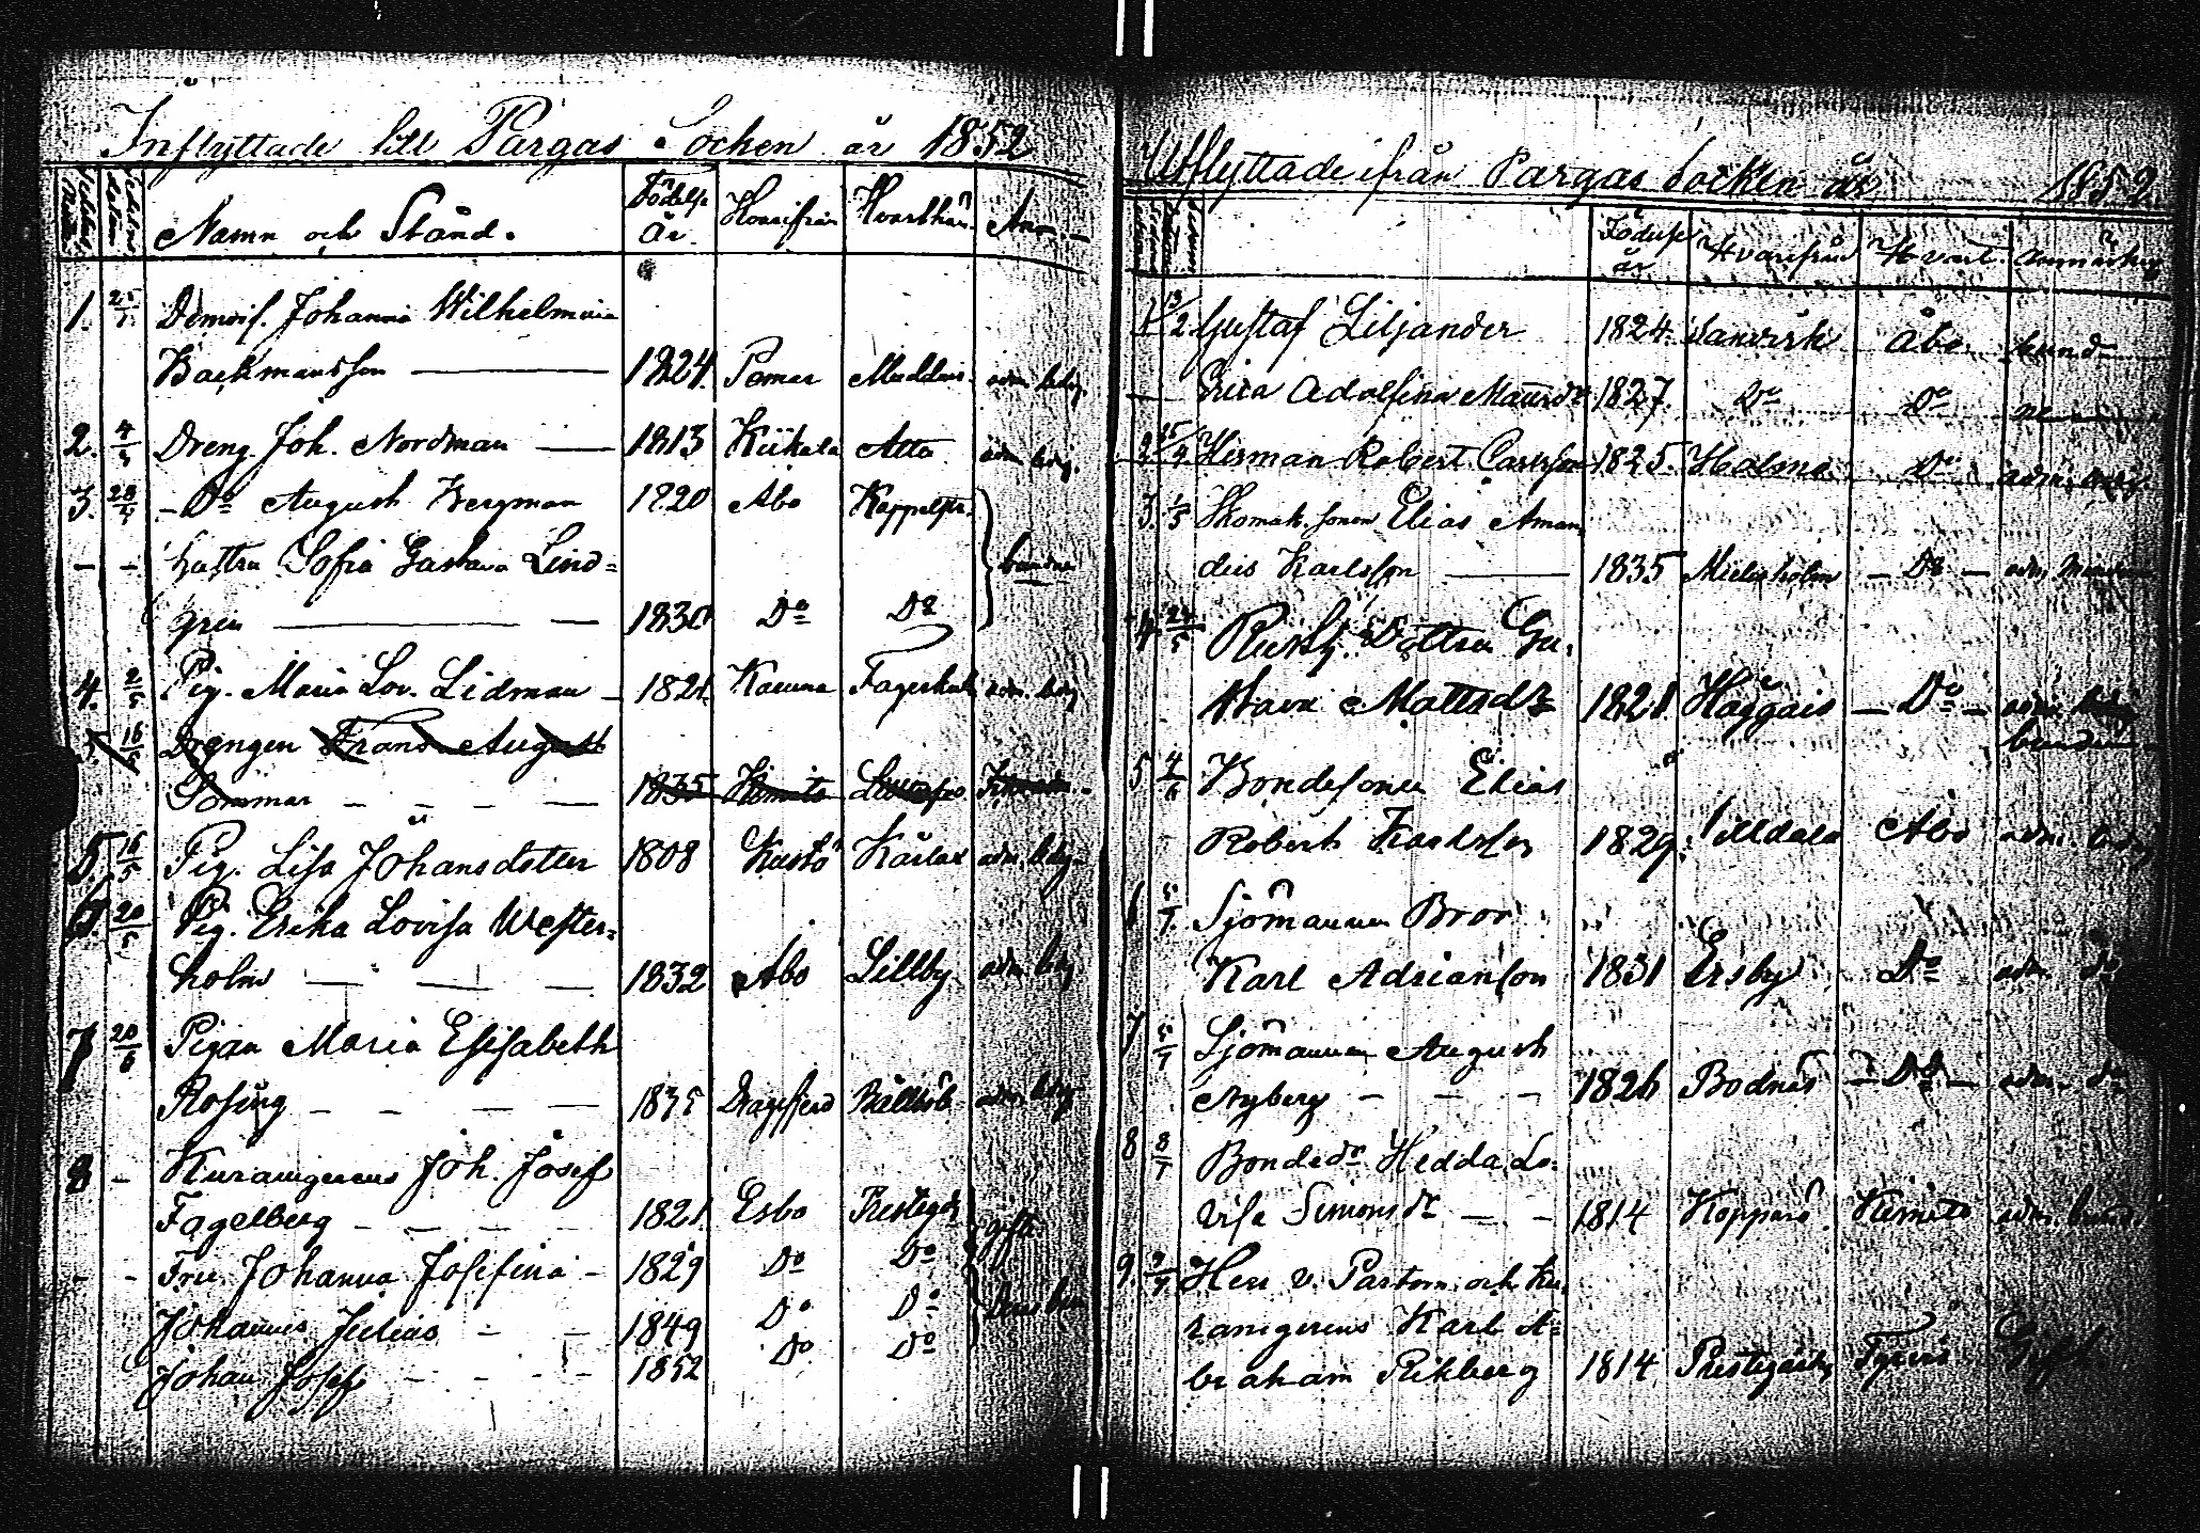 Inflyttade till Pargas Socken år 1852
Namn och Stånd. Födelse år Hvarifrån Hvarthän Anm
1. 25/1 Demois. Johanna Wilhelmina
Backmansson 1824. Pemar adm. ledig.
2. 4/4 Dreng. Joh. Nordman 1813 Kiikala Attu adm. ledig.
3. 28/4 Do August Bergman 1820 Abo Kappelstr.
- - hustru Sofia Gustava Lind= bundna
gren 1830 Do Do
4. 2/5 Pig. Maria Lov. Lidman 1821. Karuna adm. ledig
16/5 Drengen Frans August
Sommar 1835 Kimito
5. 16/5 Pig. Lisa Johansdotter 1808 Kustö Kårlax adm. ledig
6 20/5 Pig. Erika Lovisa Wester=
holm 1832 Abo Lillby adm. ledig
7 20/6 Pigan Maria Elisabeth
Rosing 1835 Dragsfjerd adm. ledig
8 - Joh. Josef
Fagelberg 1821. Esbo Prestegd gift
- - Fru Johanna Josefina 1829 Do Do
Johannes Julius 1849 Do Do
Johan Josef 1852 Do Do
Utflyttade ifrån Pargas Socken år 1852.
Födelse år Hvarifrån Hvart Anmärkn
1 13/2. Gustaf Liljander 1824. Sanvik Åbo bundn
Erica Adolfina Maursdr 1827. Do Do
2 Herman Robert Carlsson 1825. Do adm. ledig
3. 1/5 Skomak. sonen Elias Aman
deus Karlsson 1835 Mielisholm Do adm.
4 24/5 Rusth. Dottren Gu.
stava Mattsdr 1821 Haggais Do adm. ledig
5 4/6 Bondesonen Elias
Robert Karlsson 1829. Abo adm. ledig
6 5/7 Sjömannen Bror
Karl Adrianson 1831 Ersby Do adm. do
7 5/7 Sjömannen August
Nyberg 1826 Bodnäs Do adm. do
8 8/7 Bondedr Hedda Lo-
visa Simonsdr 1814 Kopparö Kimito adm.
9. 9/7 Herr v. Pastorn och Ku-
ranigerens Karl A=
braham Rikberg 1814 Prestegården